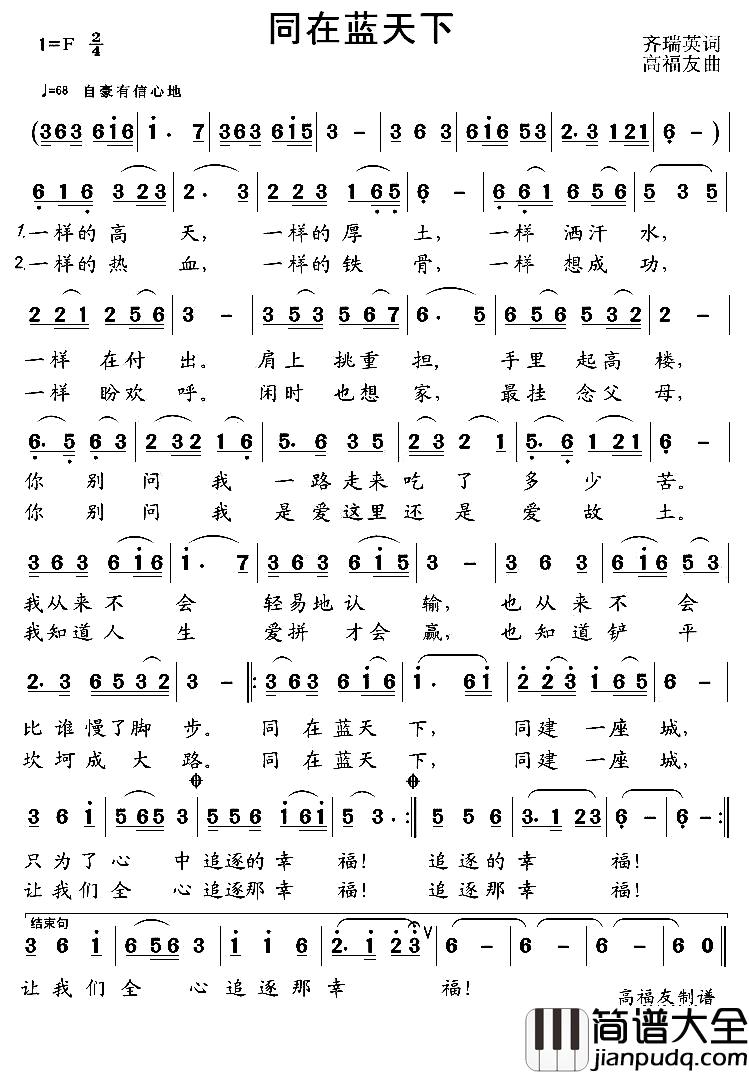 同在蓝天下
1=F 2/4
齐瑞英词
高福友曲
♩=68 自豪有信心地
(363 616 | 1. 7 | 363 615 | 3 - | 3 6 3 | 616 53 | 2.3 121 | 6 - )
6 1 6 3 2 3 | 2. 3 | 2 2 3 1 6 5 | 6 - | 6 6 1 6 5 6 | 5 3 5
1.一样的高 天, 一样的厚 土, 一样 洒汗 水,
2.一样的热 血, 一样的铁 骨, 一样 想成 功,
2 2 1 2 5 6 | 3 - | 3 5 3 5 6 7 | 6. 5 | 6 5 6 5 3 2 | 2 -
一样 在付 出。 肩上 挑重 担, 手里 起高 楼,
一样 盼欢 呼。 闲时 也想 家, 最挂 念父 母,
6. 5 6 3 | 2 3 2 1 6 | 5. 6 3 5 | 2 3 2 1 | 5. 6 1 2 1 | 6 -
你 别 问 我 一路走来吃 了 多 少 苦。
你 别 问 我 是爱这里还 是 爱 故 土。
3 6 3 6 1 6 | 1. 7 | 3 6 3 6 1 5 | 3 - | 3 6 3 | 6 1 6 5 3
我从来不 会 轻易地认 输, 也从来不 会
我知道人 生 爱拼 才会 赢, 也知道铲 平
2. 3 6 5 3 2 | 3 - |: 3 6 3 6 1 6 | 1. 6 1 | 2. 3 1 6 5 | 6 -
比谁慢了脚 步。 同 在蓝天 下, 同建 一座 城,
坎坷成大 路。 同 在蓝天 下, 同建 一座 城,
3 6 1 | 5 6 5 3 | 5 5 6 1 6 1 | 5 3. :| 5 5 6 | 3. 1 2 3 | 6 - | 6 - :|
只为了心 中追逐的幸 福! 追逐的幸 福!
让我们全 心追逐那幸 福! 追逐那幸 福!
结束句
3 6 1 | 6 5 6 3 | 1 1 6 | 2. 1 2 3 | 6 - | 6 - | 6 - | 6 0
让我们全 心追逐那幸 福!
高福友制谱
简谱大全
jianpudq.com